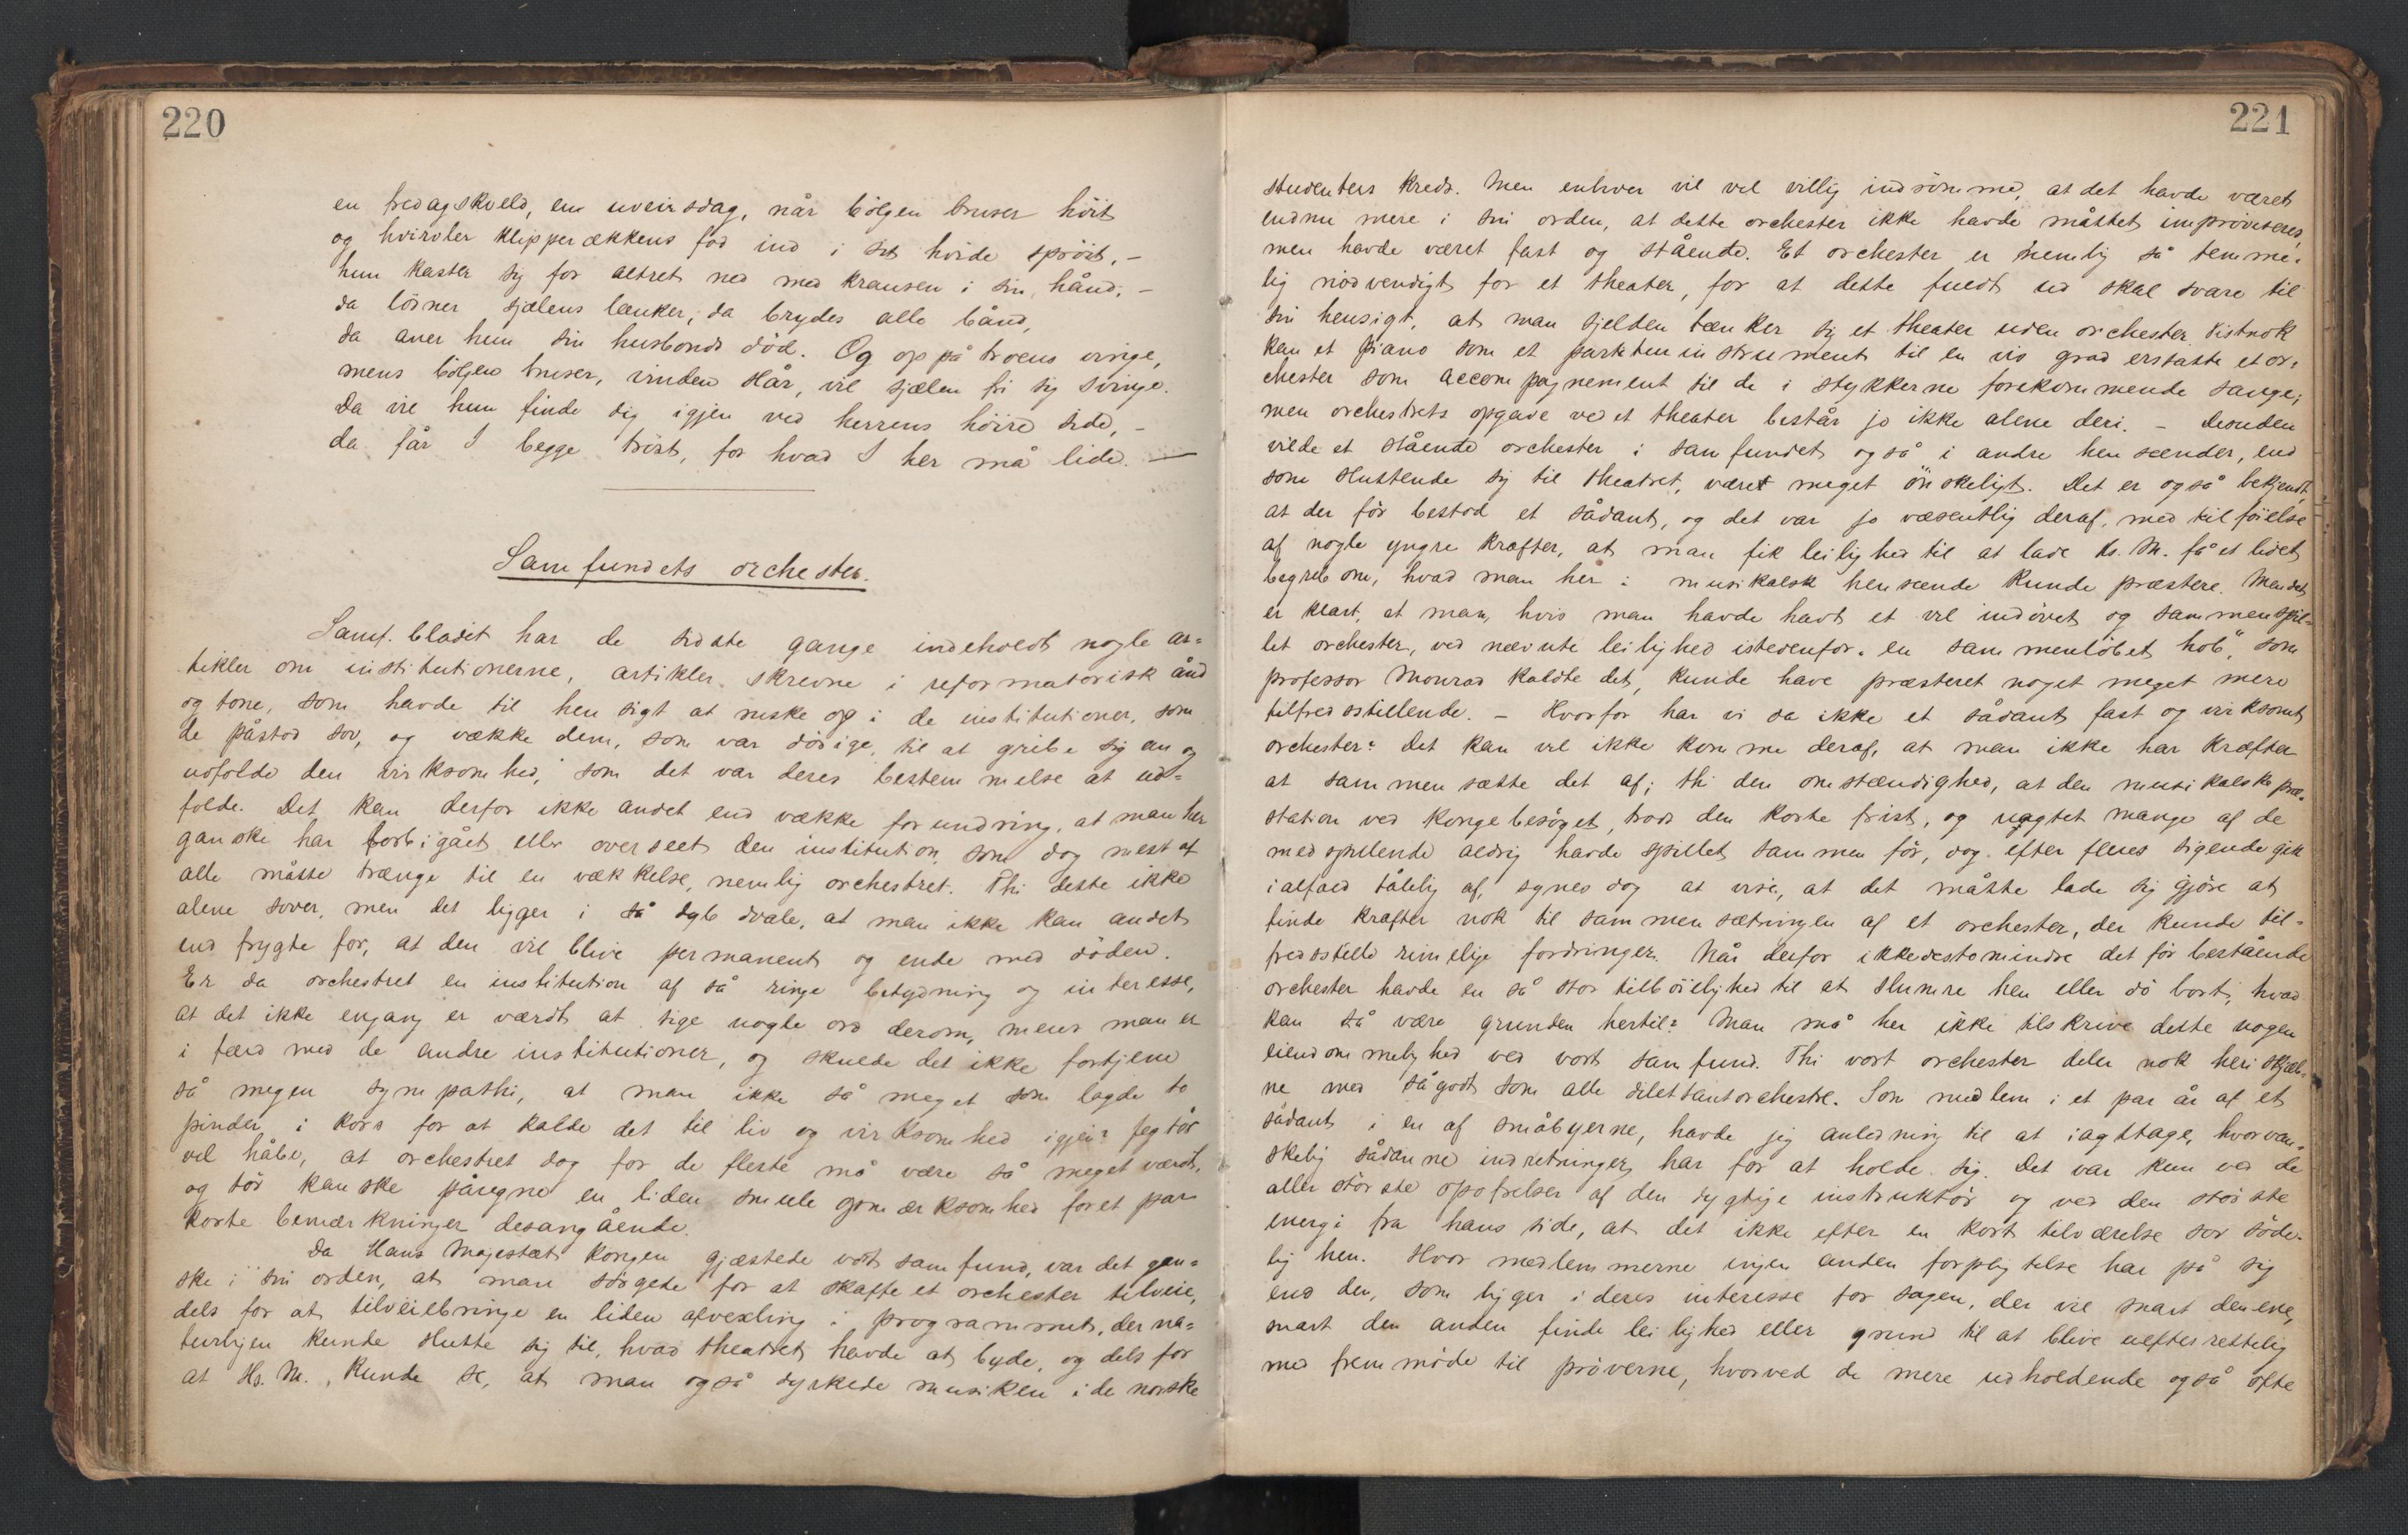 220
en fredagskveld, en uveirsdag, når bölgen bruser höit
og hvirvler klipperækkens fod ind i sit hvide spröit, –
hun kaster sig for altret ned med kransen i sin hånd, –
da lösner sjælens lænker, da brydes alle bånd,
da aner hun sin husbonds död. Og op på troens vinge,
mens bölgen bruser, vinden slår, vil sjælen fri sig svinge.
Da vil hun finde dig igjen ved herrens höire side, –
da får I begge tröst, for hvad I her må lide. —
Samfundets orchester.
Samf. bladet har de sidste gange indeholdt nogle ar=
tikler om institutionerne, artikler skrevne i reformatorisk ånd
og tone, som havde til hensigt at ruske op i de institutioner, som
de påstod sov, og vække dem, som var dösige, til at gribe sig an og
udfolde den virksomhed, som det var deres bestemmelse at ud=
folde. Det kan derfor ikke andet end vække forundring, at man her
ganske har forbigået eller overseet den institution, som dog mest af
alle måtte trænge til en vækkelse, nemlig orchestret. Thi dette ikke
alene sover, men det ligger i så dyb dvale, at man ikke kan andet
end frygte for, at den vil blive permanent og ende med döden.
Er da orchestret en institution af så ringe betydning og interesse,
at det ikke engang er værdt at sige nogle ord derom, mens man er
i færd med de andre institutioner, og skulde det ikke fortjene
så megen sympathi, at man ikke så meget som lagde to
pinder i kors for at kalde det til liv og virksomhed igjen? Jeg tör
vel håbe, at orchestret dog for de fleste må være så meget værdt,
og tör kanske påregne en liden smule opmærksomhed for et par
korte bemærkninger desangående.
Da Hans Majestæt kongen gjæstede vort samfund, var det gan=
ske i sin orden, at man sörgede for at skaffe et orchester tilveie,
dels for at tilveiebringe en liden afvexling i programmet, der na=
turligen kunde slutte sig til, hvad theatret havde at byde, og dels for
at Hs. M. kunde se, at man også dyrkede musiken i de norske
221
studenters kreds. Men enhver vil vel villig indrömme, at det havde været
endnu mere i sin orden, at dette orchester ikke havde måttet improviseres,
men havde været fast og stående. Et orchester er nemlig så temme=
lig nödvendigt for et theater, for at dette fuldt ud skal svare til
sin hensigt, at man sjelden tænker sig et theater uden orchester. Vistnok
kan et piano som et instrument til en vis grad erstatte et or=
chester som accompagnement til de i stykkerne forekommende sange;
men orchestrets opgave ved et theater består jo ikke alene deri. – Desuden
vilde et stående orchester i samfundet også i andre henseender, end
som sluttende sig til theatret, været meget önskeligt. Det er også bekjendt,
at der för bestod et sådant, og det var jo væsentlig deraf, med tilföielse
af nogle yngre kræfter, at man fik leilighed til at lade Hs. M. få et lidet
begreb om, hvad man her i musikalsk henseende kunde præstere. Men det
er klart, at man, hvis man havde havt et vel indövet og sammenspil=
let orchester, ved nævnte leilighed istedenfor „en sammenlöbet hob“, som
professor Monrad kaldte det, kunde have præsteret noget meget mere
tilfredsstillende. – Hvorfor har vi da ikke et sådant fast og virksomt
orchester? Det kan vel ikke komme deraf, at man ikke har kræfter
at sammensætte det af; thi den omstændighed, at den musikalske præ=
station ved kongebesöget, trods den korte frist, og uagtet mange af de
medspillende aldrig havde spillet sammen för, dog efter fleres sigende gik
ialfald tålelig af, synes dog at vise, at det måtte lade sig gjöre at
finde kræfter nok til sammensætningen af et orchester, der kunde til=
fredsstille rimelige fordringer. Når derfor ikkedestomindre det för bestående
orchester havde en så stor tilböielighed til at slumre hen eller dö bort, hvad
kan så være grunden hertil? Man må her ikke tilskrive dette nogen
eiendommelighed ved vort samfund. Thi vort orchester deler nok heri skjæb=
ne med sågodt som alle dilettantorchestre. Som medlem i et par år af et
sådant i en af småbyerne, havde jeg anledning til at iagttage, hvor van=
skelig sådanne indretninger har for at holde sig. Det var kun ved de
aller störste opofrelser af den dygtige instruktör og ved den störste
energi fra hans side, at det ikke efter en kort tilværelse sov söde=
lig hen. Hvor medlemmerne ingen anden forpligtelse har på sig
end den, som ligger i deres interesse for sagen, der vil snart den ene,
snart den anden finde leilighed eller grund til at blive uefterrettelig
med fremmöde til pröverne, hvorved de mere udholdende også ofte